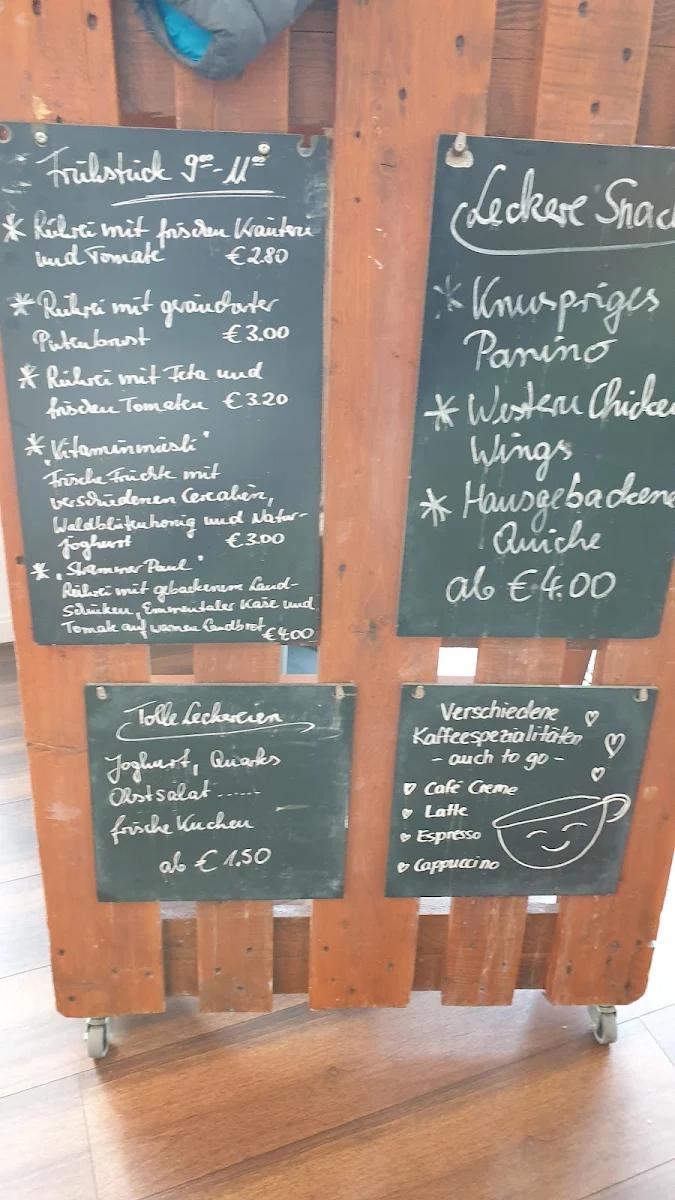 Frühstück 9⁰⁰-11⁰⁰
* Rührei mit frischen Kräutern
und Tomate € 2.80
* Rührei mit geräucherter
Putenbrust € 3.00
* Rührei mit Feta und
frischen Tomaten € 3.20
* "Vitaminmüsli"
Frische Früchte mit
verschiedenen Cerealien,
Waldblütenhonig und Natur-
joghurt € 3.00
* "Strammer Paul"
Rührei mit gebackenem Land-
Schinken, Emmentaler Käse und
Tomate auf warmen Landbrot € 4.00
Leckere Snac
* Knuspriges
Panino
* Western Chicken
Wings
* Hausgebackene
Quiche
ab € 4.00
Tolle Leckereien
Joghurt, Quarks
Obstsalat ......
frische Kuchen
ab € 1.50
Verschiedene
Kaffeespezialitäten
- auch to go -
♡ Café Creme
♡ Latte
♡ Espresso
♡ Cappuccino